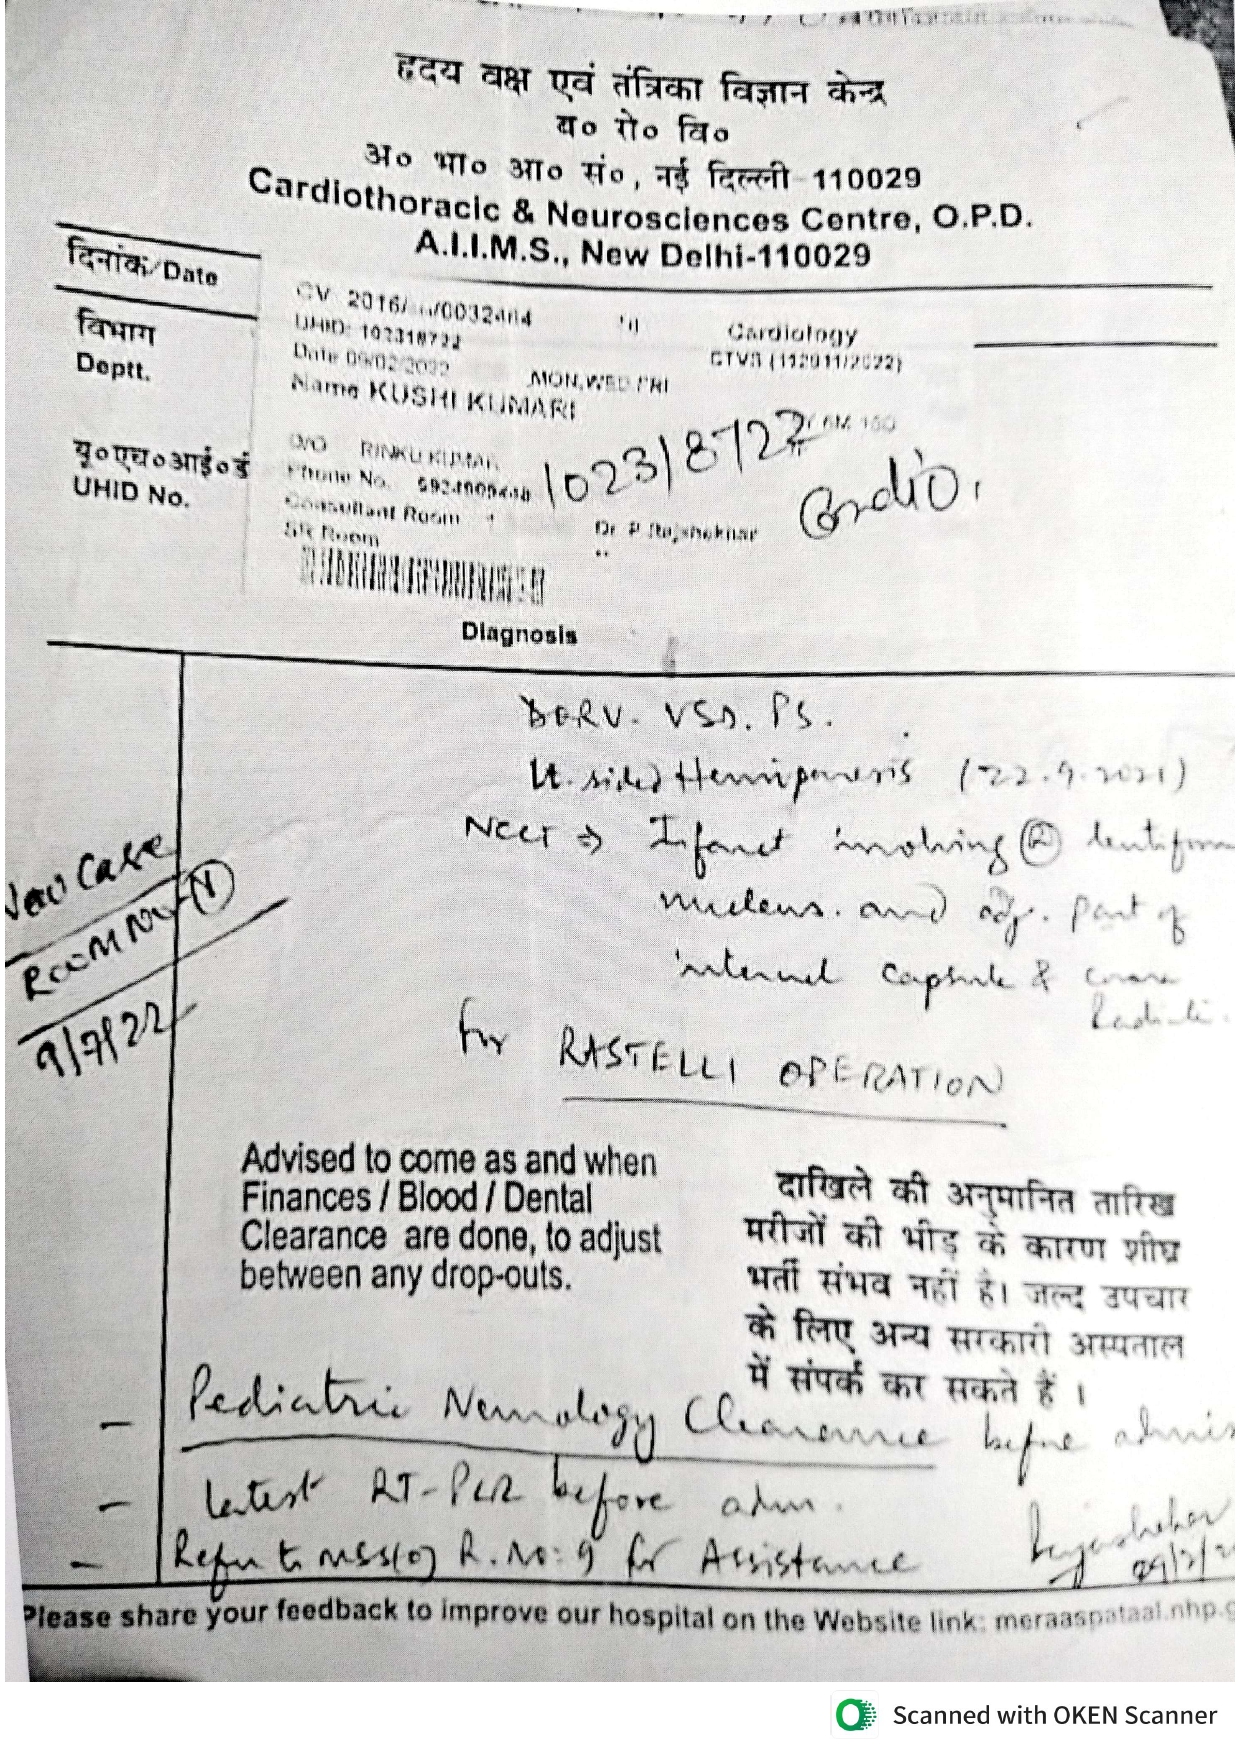 हृदय वक्ष एवं तंत्रिका विज्ञान केन्द्र
ब० रो० वि०
अ० भा० आ० सं०, नई दिल्ली 110029
Cardiothoracic & Neurosciences Centre, O.P.D.
A.I.I.M.S., New Delhi-110029
दिनांक/Date
विभाग
Deptt.
यू०एच०आई०डी
UHID No.
CV 2016/ /0032464
Cardiology
UHID: 102318722
CTVS (112011/2022)
Date 09/02/2022
MON,WED FRI
Name KUSHI KUMARI
D/O RINKU KUMAR
102318722
Cardio.
Phone No.
Consultant Room
Dr P Rajshekhar
SR Room
Diagnosis
DORV. VSD. PS.
Lt. sided Hemiparesis (22.9.2021)
NCCT ⇒ Infarct involving (R) lentiform
nucleus. and adj. part of
internal capsule & corona
Radiata.
for RASTELLI OPERATION
New Case
ROOM NO-1
9/7/22
Advised to come as and when
Finances / Blood / Dental
Clearance are done, to adjust
between any drop-outs.
दाखिले की अनुमानित तारिख
मरीजों की भीड़ के कारण शीघ्र
भर्ती संभव नहीं है। जल्द उपचार
के लिए अन्य सरकारी अस्पताल
में संपर्क कर सकते हैं ।
- Pediatric Neurology Clearance before admis
- latest RT-PCR before adm.
- Refer to MSSO R.No: 9 for Assistance
Rajashekar
Please share your feedback to improve our hospital on the Website link: meraaspataal.nhp.g
Scanned with OKEN Scanner